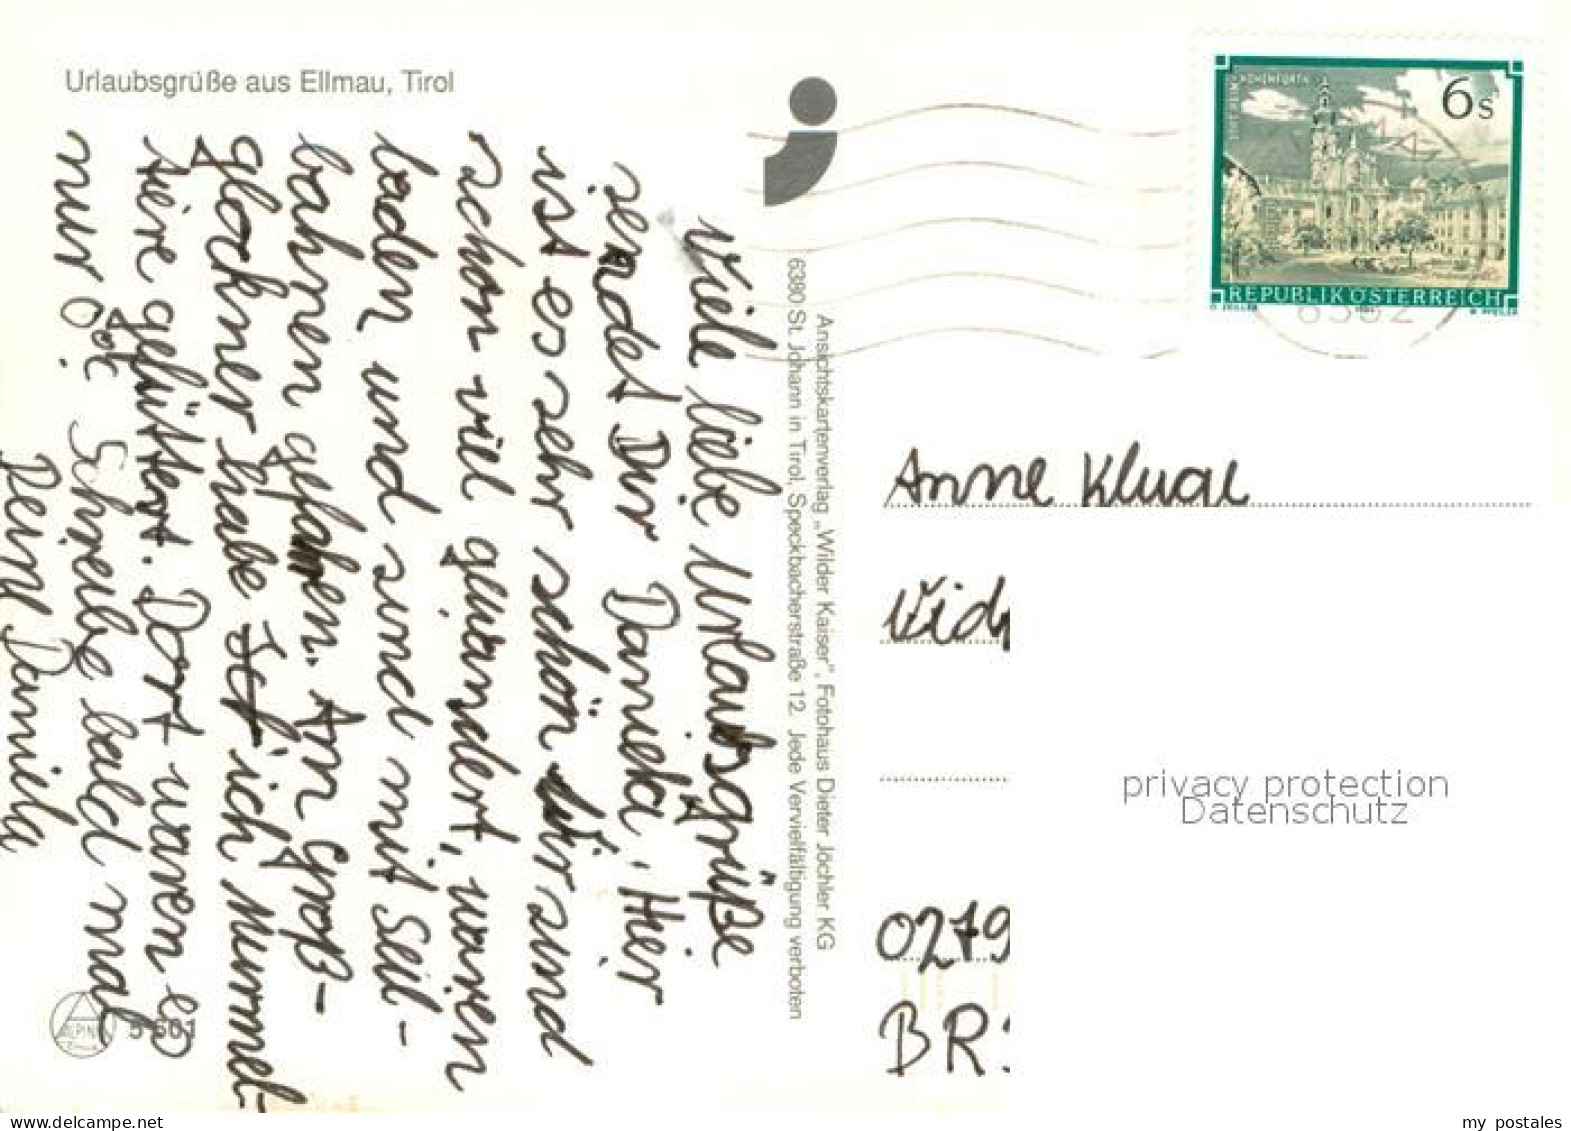 Urlaubsgrüße aus Ellmau, Tirol
Viele liebe Urlaubsgrüße
sendet Dir Daniela. Hier
ist es sehr schön. Wir sind
schon viel gewandert, waren
baden und sind mit Seil-
bahnen gefahren. Am Groß-
glockner habe ich Murmel-
tiere gefüttert. Dort waren es
nur 0°C. Schreibe bald mal
Deine Daniela
5-501
Ansichtskartenverlag „Wilder Kaiser", Fotohaus Dieter Jöchler KG
6380 St. Johann in Tirol, Speckbacherstraße 12. Jede Vervielfältigung verboten
6s
REPUBLIK ÖSTERREICH
6352
Anne Kluge
0279
BR
privacy protection
Datenschutz
www.delcampe.net
my_postales